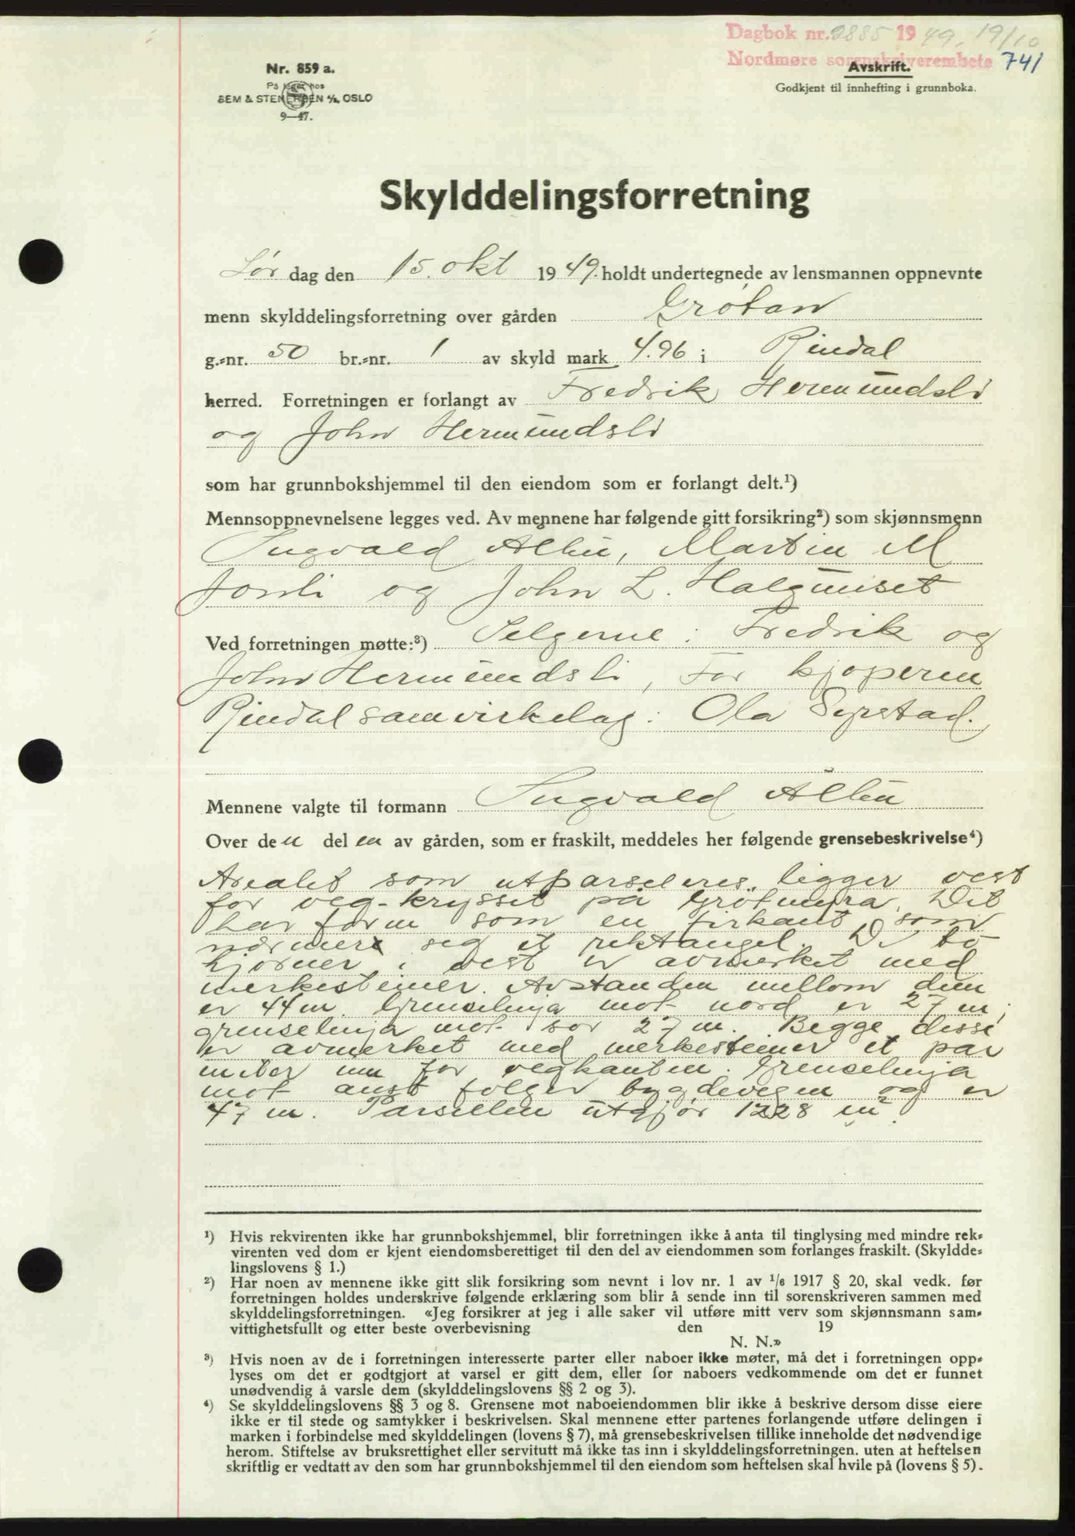 Dagbok nr. 2885 1949, 19/10
Nordmøre sorenskriverembete 741
Avskrift.
Godkjent til innhefting i grunnboka.
Nr. 859 a.
På lager hos
SEM & STENERSEN A/S, OSLO
9—47.
Skylddelingsforretning
Lør dag den 15. okt 1949. holdt undertegnede av lensmannen oppnevnte
menn skylddelingsforretning over gården Grøtan
g.-nr. 50 br.-nr. 1 av skyld mark 4.96 i Rindal
herred. Forretningen er forlangt av Fredrik Hermundsli
og John Hermundsli
som har grunnbokshjemmel til den eiendom som er forlangt delt.¹)
Mennsoppnevnelsene legges ved. Av mennene har følgende gitt forsikring²) som skjønnsmenn
Ingvald Alhu, Martin M
Jonli og John L. Halgunset
Ved forretningen møtte:³) Selgerne: Fredrik og
John Hermundsli, For kjøperen
Rindal samvirkelag: Ola Syrstad.
Mennene valgte til formann Ingvald Alhu
Over den delen av gården, som er fraskilt, meddeles her følgende grensebeskrivelse⁴)
Arealet som utparseleres ligger vest
for veg-krysset på Grøtmyra. Det
har form som en firkant som
nærmer sig et rektangel. De to
hjørner i vest er avmerket med
merkesteiner. Avstanden mellom dem
er 44 m. Grenselinja mot nord er 27 m,
grenselinja mot sør 27 m. Begge disse
er avmerket med merkesteiner et par
meter inn for vegkanten. Grenselinja
mot aust følger bygdevegen og er
47 m. Parsellen utgjør 1228 m².
¹) Hvis rekvirenten ikke har grunnbokshjemmel, blir forretningen ikke å anta til tinglysing med mindre rek-
virenten ved dom er kjent eiendomsberettiget til den del av eiendommen som forlanges fraskilt. (Skyldde-
lingslovens § 1.)
²) Har noen av mennene ikke gitt slik forsikring som nevnt i lov nr. 1 av 1/6 1917 § 20, skal vedk. før
forretningen holdes underskrive følgende erklæring som blir å sende inn til sorenskriveren sammen med
skylddelingsforretningen. «Jeg forsikrer at jeg i alle saker vil utføre mitt verv som skjønnsmann sam-
vittighetsfullt og etter beste overbevisning den 19
N. N.»
³) Hvis noen av de i forretningen interesserte parter eller naboer ikke møter, må det i forretningen opp-
lyses om det er godtgjort at varsel er gitt dem, eller for naboers vedkommende om det er funnet
unødvendig å varsle dem (skylddelingslovens §§ 2 og 3).
⁴) Se skylddelingslovens §§ 3 og 8. Grensene mot naboeiendommen blir ikke å beskrive dersom disse eiere
ikke er til stede og samtykker i beskrivelsen. Skal mennene etter partenes forlangende utføre delingen i
marken i forbindelse med skylddelingen (lovens § 7), må grensebeskrivelsen tillike inneholde det nødvendige
herom. Stiftelse av bruksrettighet eller servitutt må ikke tas inn i skylddelingsforretningen, uten at heftelsen
skriftlig er vedtatt av den som har grunnbokshjemmel til den eiendom som heftelsen skal hvile på (lovens § 5).